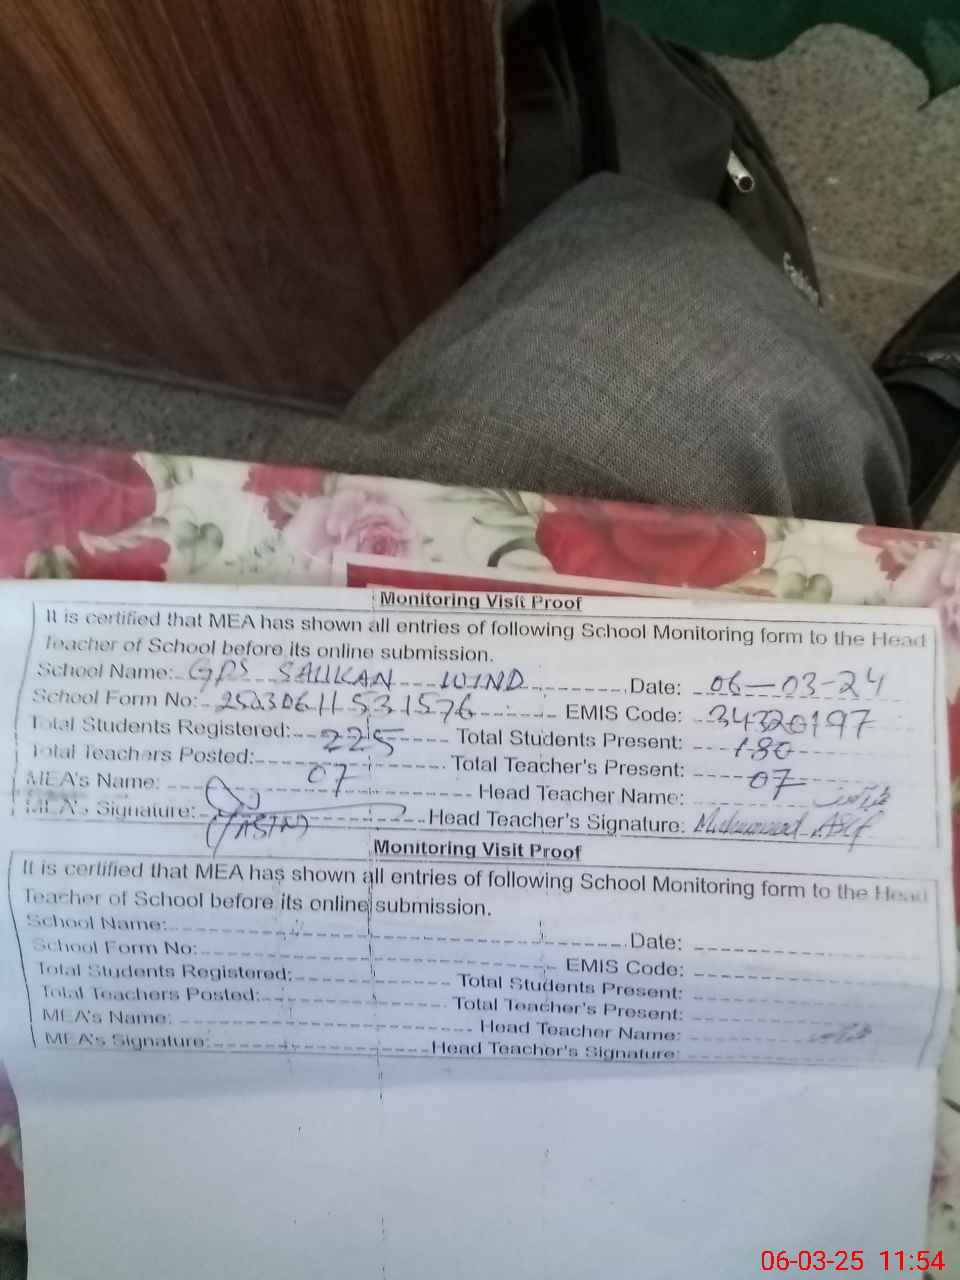 Monitoring Visit Proof
It is certified that MEA has shown all entries of following School Monitoring form to the Head
Teacher of School before its online submission.
School Name: GPS SAUKAN WIND Date: 06-03-24
School Form No: 25030611531576 EMIS Code: 34320197
Total Students Registered: 225 Total Students Present: 180
Total Teachers Posted: 07 Total Teacher's Present: 07
MEA's Name: Head Teacher Name:
MEA's Signature: (YASIN) Head Teacher's Signature: Muhammad
Monitoring Visit Proof
It is certified that MEA has shown all entries of following School Monitoring form to the Head
Teacher of School before its online submission.
School Name: Date:
School Form No: EMIS Code:
Total Students Registered: Total Students Present:
Total Teachers Posted: Total Teacher's Present:
MEA's Name: Head Teacher Name:
MEA's Signature: Head Teacher's Signature:
06-03-25 11:54